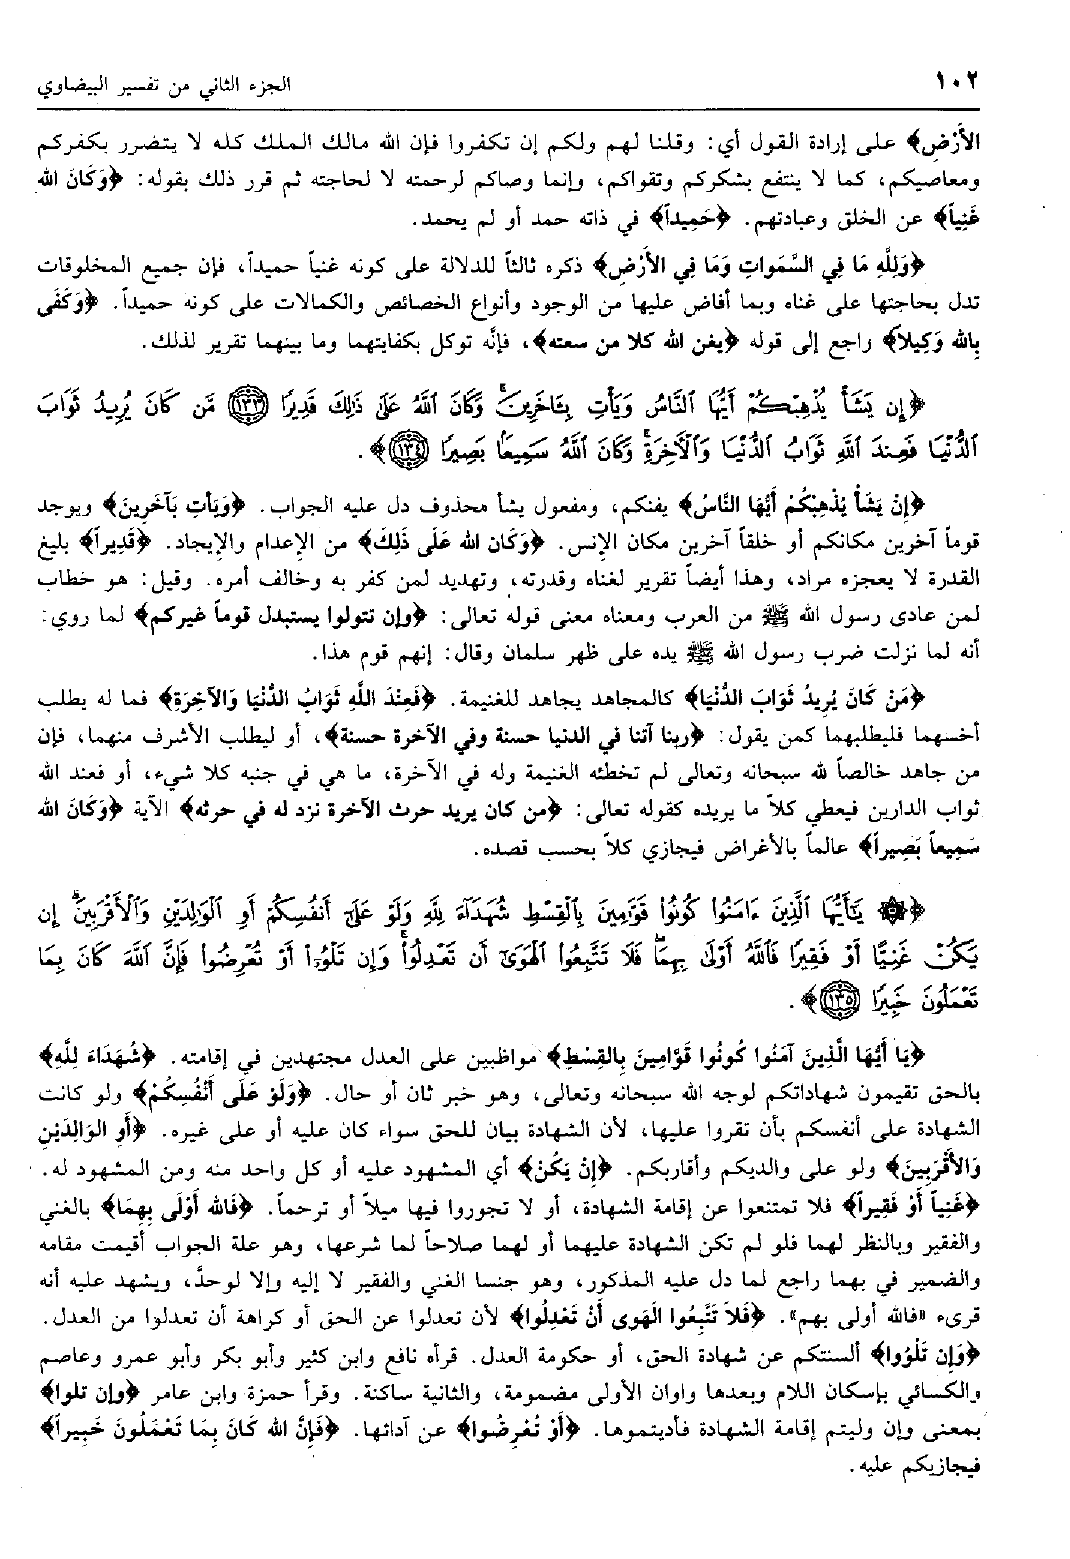 ١٠٢
الجزء الثاني من تفسير البيضاوي
الأَرْضِ﴾ على إرادة القول أي: وقلنا لهم ولكم إن تكفروا فإن الله مالك الملك كله لا يتضرر بكفركم
ومعاصيكم، كما لا ينتفع بشكركم وتقواكم، وإنما وصاكم لرحمته لا لحاجته ثم قرر ذلك بقوله: ﴿وَكَانَ الله
غَنِياً﴾ عن الخلق وعبادتهم. ﴿حَمِيداً﴾ في ذاته حمد أو لم يحمد.
﴿وَلِلَّهِ مَا فِي السَّمَواتِ وَمَا فِي الأَرْضِ﴾ ذكره ثالثاً للدلالة على كونه غنياً حميداً، فإن جميع المخلوقات
تدل بحاجتها على غناه وبما أفاض عليها من الوجود وأنواع الخصائص والكمالات على كونه حميداً. ﴿وَكَفَى
بِالله وَكِيلاً﴾ راجع إلى قوله ﴿يغن الله كلا من سعته﴾، فإنَّه توكل بكفايتهما وما بينهما تقرير لذلك.
﴿إِن يَشَأْ يُذْهِبْكُمْ أَيُّهَا ٱلنَّاسُ وَيَأْتِ بِـَٔاخَرِينَۚ وَكَانَ ٱللَّهُ عَلَىٰ ذَٰلِكَ قَدِيرًا ۝١٣٣ مَّن كَانَ يُرِيدُ ثَوَابَ
ٱلدُّنْيَا فَعِندَ ٱللَّهِ ثَوَابُ ٱلدُّنْيَا وَٱلْأَخِرَةِۚ وَكَانَ ٱللَّهُ سَمِيعًۢا بَصِيرًا ۝١٣٤﴾.
﴿إِنْ يَشَأْ يُذْهِبْكُمْ أَيُّهَا النَّاسُ﴾ يفنكم، ومفعول يشأ محذوف دل عليه الجواب. ﴿وَيَأْتِ بَآخَرِينَ﴾ ويوجد
قوماً آخرين مكانكم أو خلقاً آخرين مكان الإنس. ﴿وَكَان الله عَلَى ذَلِكَ﴾ من الإعدام والإيجاد. ﴿قَدِيراً﴾ بليغ
القدرة لا يعجزه مراد، وهذا أيضاً تقرير لغناه وقدرته، وتهديد لمن كفر به وخالف أمره. وقيل: هو خطاب
لمن عادى رسول الله ﷺ من العرب ومعناه معنى قوله تعالى: ﴿وإن تتولوا يستبدل قوماً غيركم﴾ لما روي:
أنه لما نزلت ضرب رسول الله ﷺ يده على ظهر سلمان وقال: إنهم قوم هذا.
﴿مَنْ كَانَ يُرِيدُ ثَوَابَ الدُّنْيَا﴾ كالمجاهد يجاهد للغنيمة. ﴿فَعِنْدَ اللَّهِ ثَوَابُ الدُّنْيَا وَالآخِرَةِ﴾ فما له يطلب
أخسهما فليطلبهما كمن يقول: ﴿ربنا آتنا في الدنيا حسنة وفي الآخرة حسنة﴾، أو ليطلب الأشرف منهما، فإن
من جاهد خالصاً لله سبحانه وتعالى لم تخطئه الغنيمة وله في الآخرة، ما هي في جنبه كلا شيء، أو فعند الله
ثواب الدارين فيعطي كلاً ما يريده كقوله تعالى: ﴿من كان يريد حرث الآخرة نزد له في حرثه﴾ الآية ﴿وَكَانَ الله
سَمِيعاً بَصِيراً﴾ عالماً بالأغراض فيجازي كلاً بحسب قصده.
﴿۞ يَـٰٓأَيُّهَا ٱلَّذِينَ ءَامَنُوا۟ كُونُوا۟ قَوَّٰمِينَ بِٱلْقِسْطِ شُهَدَآءَ لِلَّهِ وَلَوْ عَلَىٰٓ أَنفُسِكُمْ أَوِ ٱلْوَٰلِدَيْنِ وَٱلْأَقْرَبِينَۚ إِن
يَكُنْ غَنِيًّا أَوْ فَقِيرًا فَٱللَّهُ أَوْلَىٰ بِهِمَاۖ فَلَا تَتَّبِعُوا۟ ٱلْهَوَىٰٓ أَن تَعْدِلُوا۟ۚ وَإِن تَلْوُۥٓا۟ أَوْ تُعْرِضُوا۟ فَإِنَّ ٱللَّهَ كَانَ بِمَا
تَعْمَلُونَ خَبِيرًا ۝١٣٥﴾.
﴿يَا أَيُّهَا الَّذِينَ آمَنُوا كُونُوا قَوَّامِينَ بِالقِسْطِ﴾ مواظبين على العدل مجتهدين في إقامته. ﴿شُهَدَاءَ لِلَّهِ﴾
بالحق تقيمون شهاداتكم لوجه الله سبحانه وتعالى، وهو خبر ثان أو حال. ﴿وَلَوْ عَلَى أَنْفُسِكُمْ﴾ ولو كانت
الشهادة على أنفسكم بأن تقروا عليها، لأن الشهادة بيان للحق سواء كان عليه أو على غيره. ﴿أَوِ الوَالِدَيْنِ
وَالأَقْرَبِينَ﴾ ولو على والديكم وأقاربكم. ﴿إِنْ يَكُنْ﴾ أي المشهود عليه أو كل واحد منه ومن المشهود له.
﴿غَنِياً أَوْ فَقِيراً﴾ فلا تمتنعوا عن إقامة الشهادة، أو لا تجوروا فيها ميلاً أو ترحماً. ﴿فَالله أَوْلَى بِهِمَا﴾ بالغني
والفقير وبالنظر لهما فلو لم تكن الشهادة عليهما أو لهما صلاحاً لما شرعها، وهو علة الجواب أقيمت مقامه
والضمير في بهما راجع لما دل عليه المذكور، وهو جنسا الغني والفقير لا إليه وإلا لوحدَّ، ويشهد عليه أنه
قرىء «فالله أولى بهم». ﴿فَلاَ تَتَّبِعُوا الْهَوى أَنْ تَعْدِلُوا﴾ لأن تعدلوا عن الحق أو كراهة أن تعدلوا من العدل.
﴿وَإِن تَلْوُوا﴾ ألسنتكم عن شهادة الحق، أو حكومة العدل. قرأه نافع وابن كثير وأبو بكر وأبو عمرو وعاصم
والكسائي بإسكان اللام وبعدها واوان الأولى مضمومة، والثانية ساكنة. وقرأ حمزة وابن عامر ﴿وإن تلوا﴾
بمعنى وإن وليتم إقامة الشهادة فأديتموها. ﴿أَوْ تُعْرِضُوا﴾ عن آدائها. ﴿فَإِنَّ الله كَانَ بِمَا تَعْمَلُونَ خَبِيراً﴾
فيجازيكم عليه.